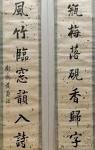 瓶梅落硯香歸字
風竹臨窓韻入詩